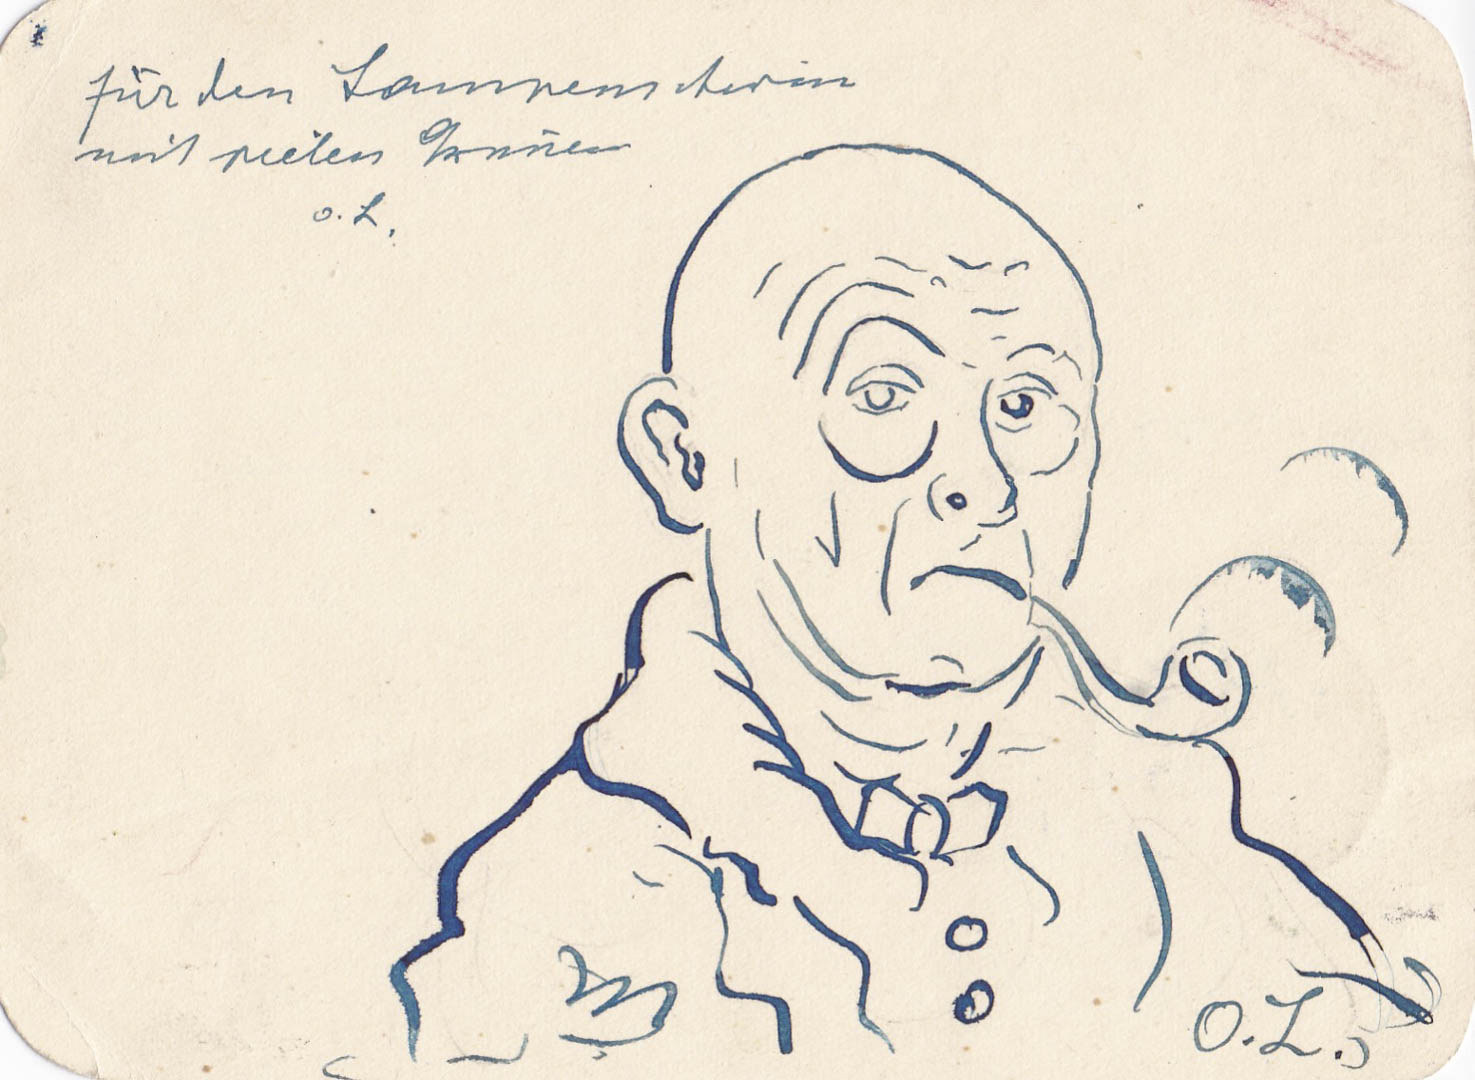 für den Lampenschirm
mit vielen Grüßen
O. L.
O.L.